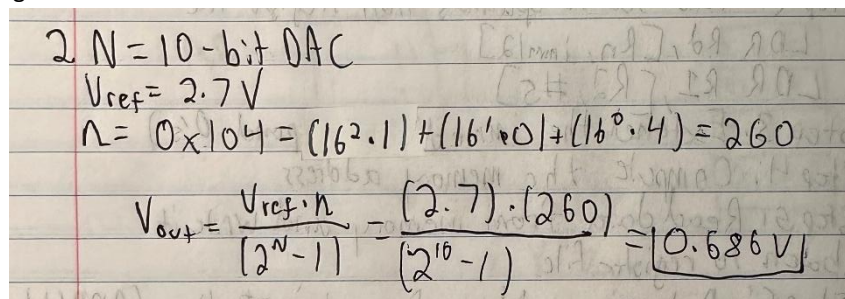 2 N = 10-bit DAC
Vref = 2.7 V
n = 0x104 = (16².1)+(16¹.0)+(16⁰.4) = 260
Vout = Vref.n / (2ᴺ-1) = (2.7).(260) / (2¹⁰-1) = 0.686V